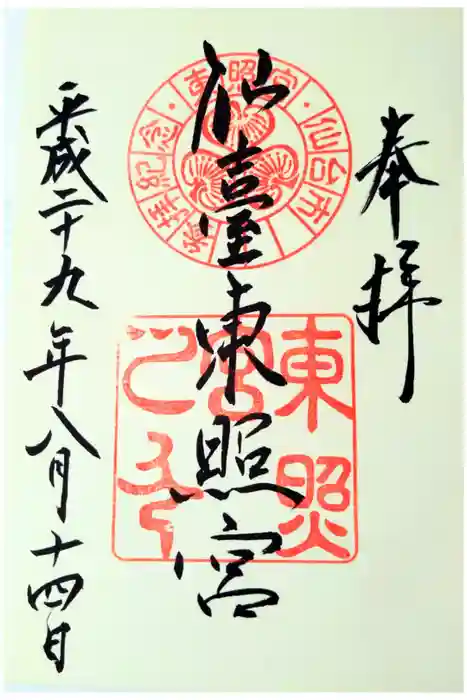 奉拝
仙臺東照宮
平成二十九年八月十四日
東照宮・仙台市
参拝記念
東照宮